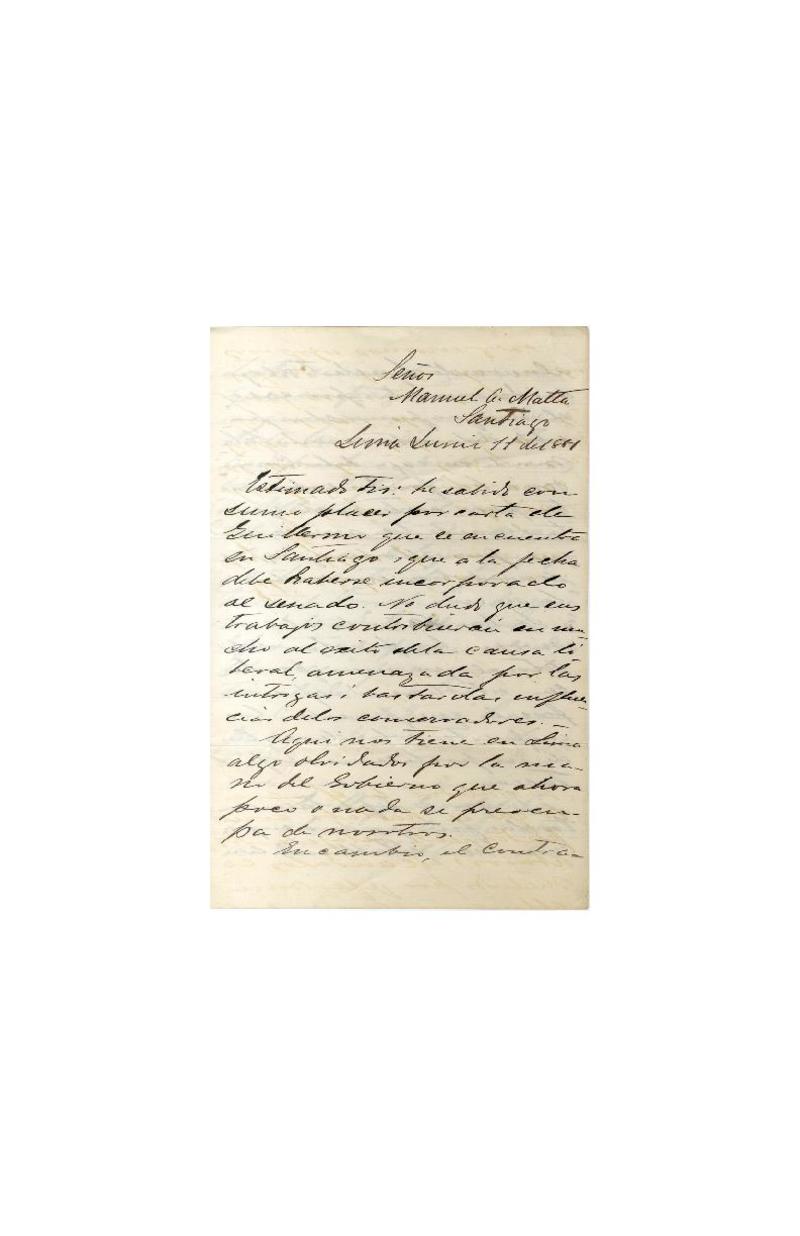 Señor
Manuel A. Matta
Santiago
Lima Junio 11 de 1881
Estimado Tio: he sabido con
sumo placer por carta de
Guillermo que se encuentra
en Santiago i que a la fecha
debe haberse incorporado
al senado. No dudo que sus
trabajos contribuirán en mu-
cho al exito de la causa li
beral, amenazada por las
intrigas i bastardas influen
cias de los conservadores. _
Aqui nos tiene en Lima
algo olvidados por la ma-
no del Gobierno que ahora
poco o nada se preocu-
pa de nosotros.
En cambio, el Contra-